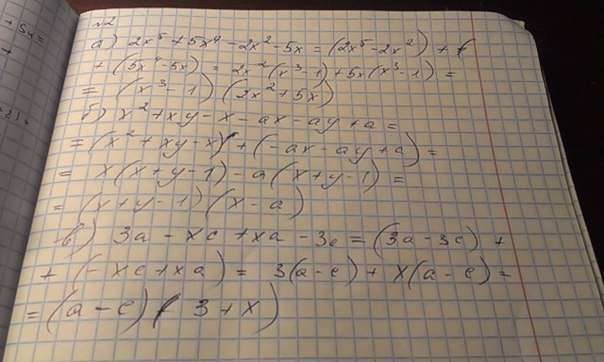 №2
а) 2x⁵ + 5x⁴ - 2x² - 5x = (2x⁵ - 2x²) +
+ (5x⁴ - 5x) = 2x²(x³ - 1) + 5x(x³ - 1) =
= (x³ - 1)(2x² + 5x)
б) x² + xy - x - ax - ay + a =
= (x² + xy - x) + (-ax - ay + a) =
= x(x + y - 1) - a(x + y - 1) =
= (x + y - 1)(x - a)
в) 3a - xc + xa - 3c = (3a - 3c) +
+ (-xc + xa) = 3(a - c) + x(a - c) =
= (a - c)(3 + x)